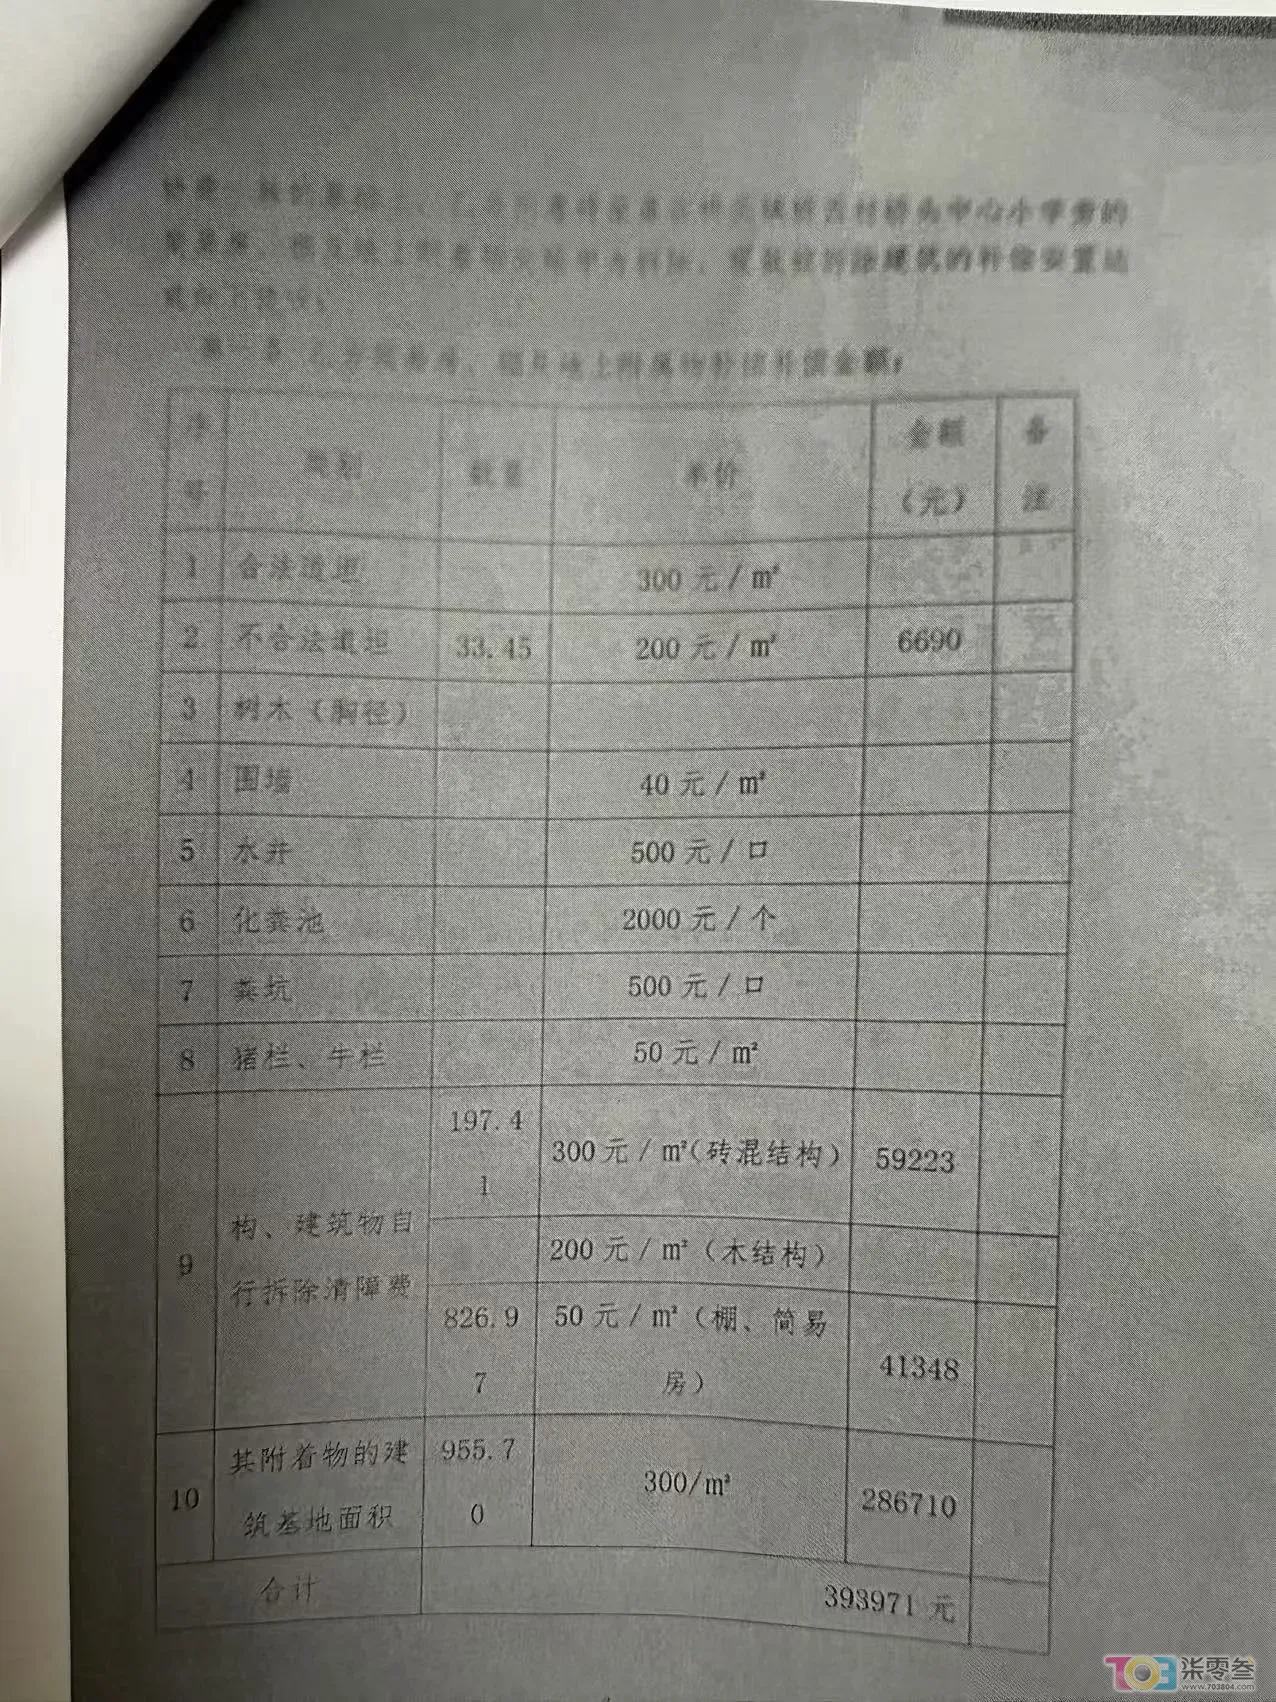 中心小学旁的
建筑的补偿安置达
地上附属物补偿补偿金额：
序号 类别 数量 单价 金额（元） 备注
1 合法道坦 300元/㎡
2 不合法道坦 33.45 200元/㎡ 6690
3 树木（胸径）
4 围墙 40元/㎡
5 水井 500元/口
6 化粪池 2000元/个
7 粪坑 500元/口
8 猪栏、牛栏 50元/㎡
9 构、建筑物自行拆除清障费 197.41 300元/㎡（砖混结构） 59223
200元/㎡（木结构）
826.97 50元/㎡（棚、简易房） 41348
10 其附着物的建筑基地面积 955.70 300/㎡ 286710
合计 393971元
703 柒零叁
www.703804.com